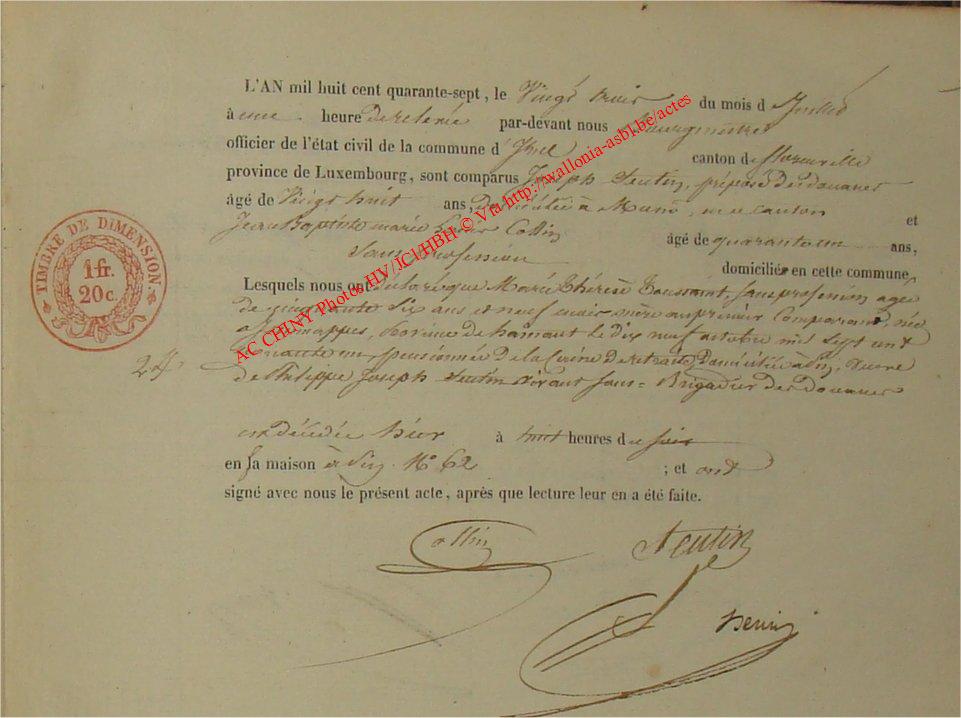 L'AN mil huit cent quarante-sept, le Vingt trois du mois d Juillet
à une heure de relevée par-devant nous Bourgmestre
officier de l'état civil de la commune d'Izel canton de florenville
province de Luxembourg, sont comparus Joseph Seutin, préposé des douanes
âgé de Vingt huit ans, domicilié à Muno, même canton et
Jean Baptiste marie Collin âgé de quarante un ans,
Sans profession domiciliés en cette commune,
Lesquels nous ont déclaré que Marie Thérèse Toussaint, sans profession agée
de cinquante Six ans et neuf mois mère au premier Comparant, née
a Jemmappes, province de hainaut le dix neuf octobre mil sept cent
pensionnée de la Caisse de retraite domiciliée à Izel, veuve
de Philippe Joseph Seutin vivant Sous-Brigadier des douanes
24
est décédée hier à huit heures du soir
en sa maison à Izel N° 62 ; et ont
signé avec nous le présent acte, après que lecture leur en a été faite.
Collin Seutin
TIMBRE DE DIMENSION.
1 fr.
20 c.
AC CHINY Photos HV/JCl/HBH © Via http://wallonia-asbl.be/actes